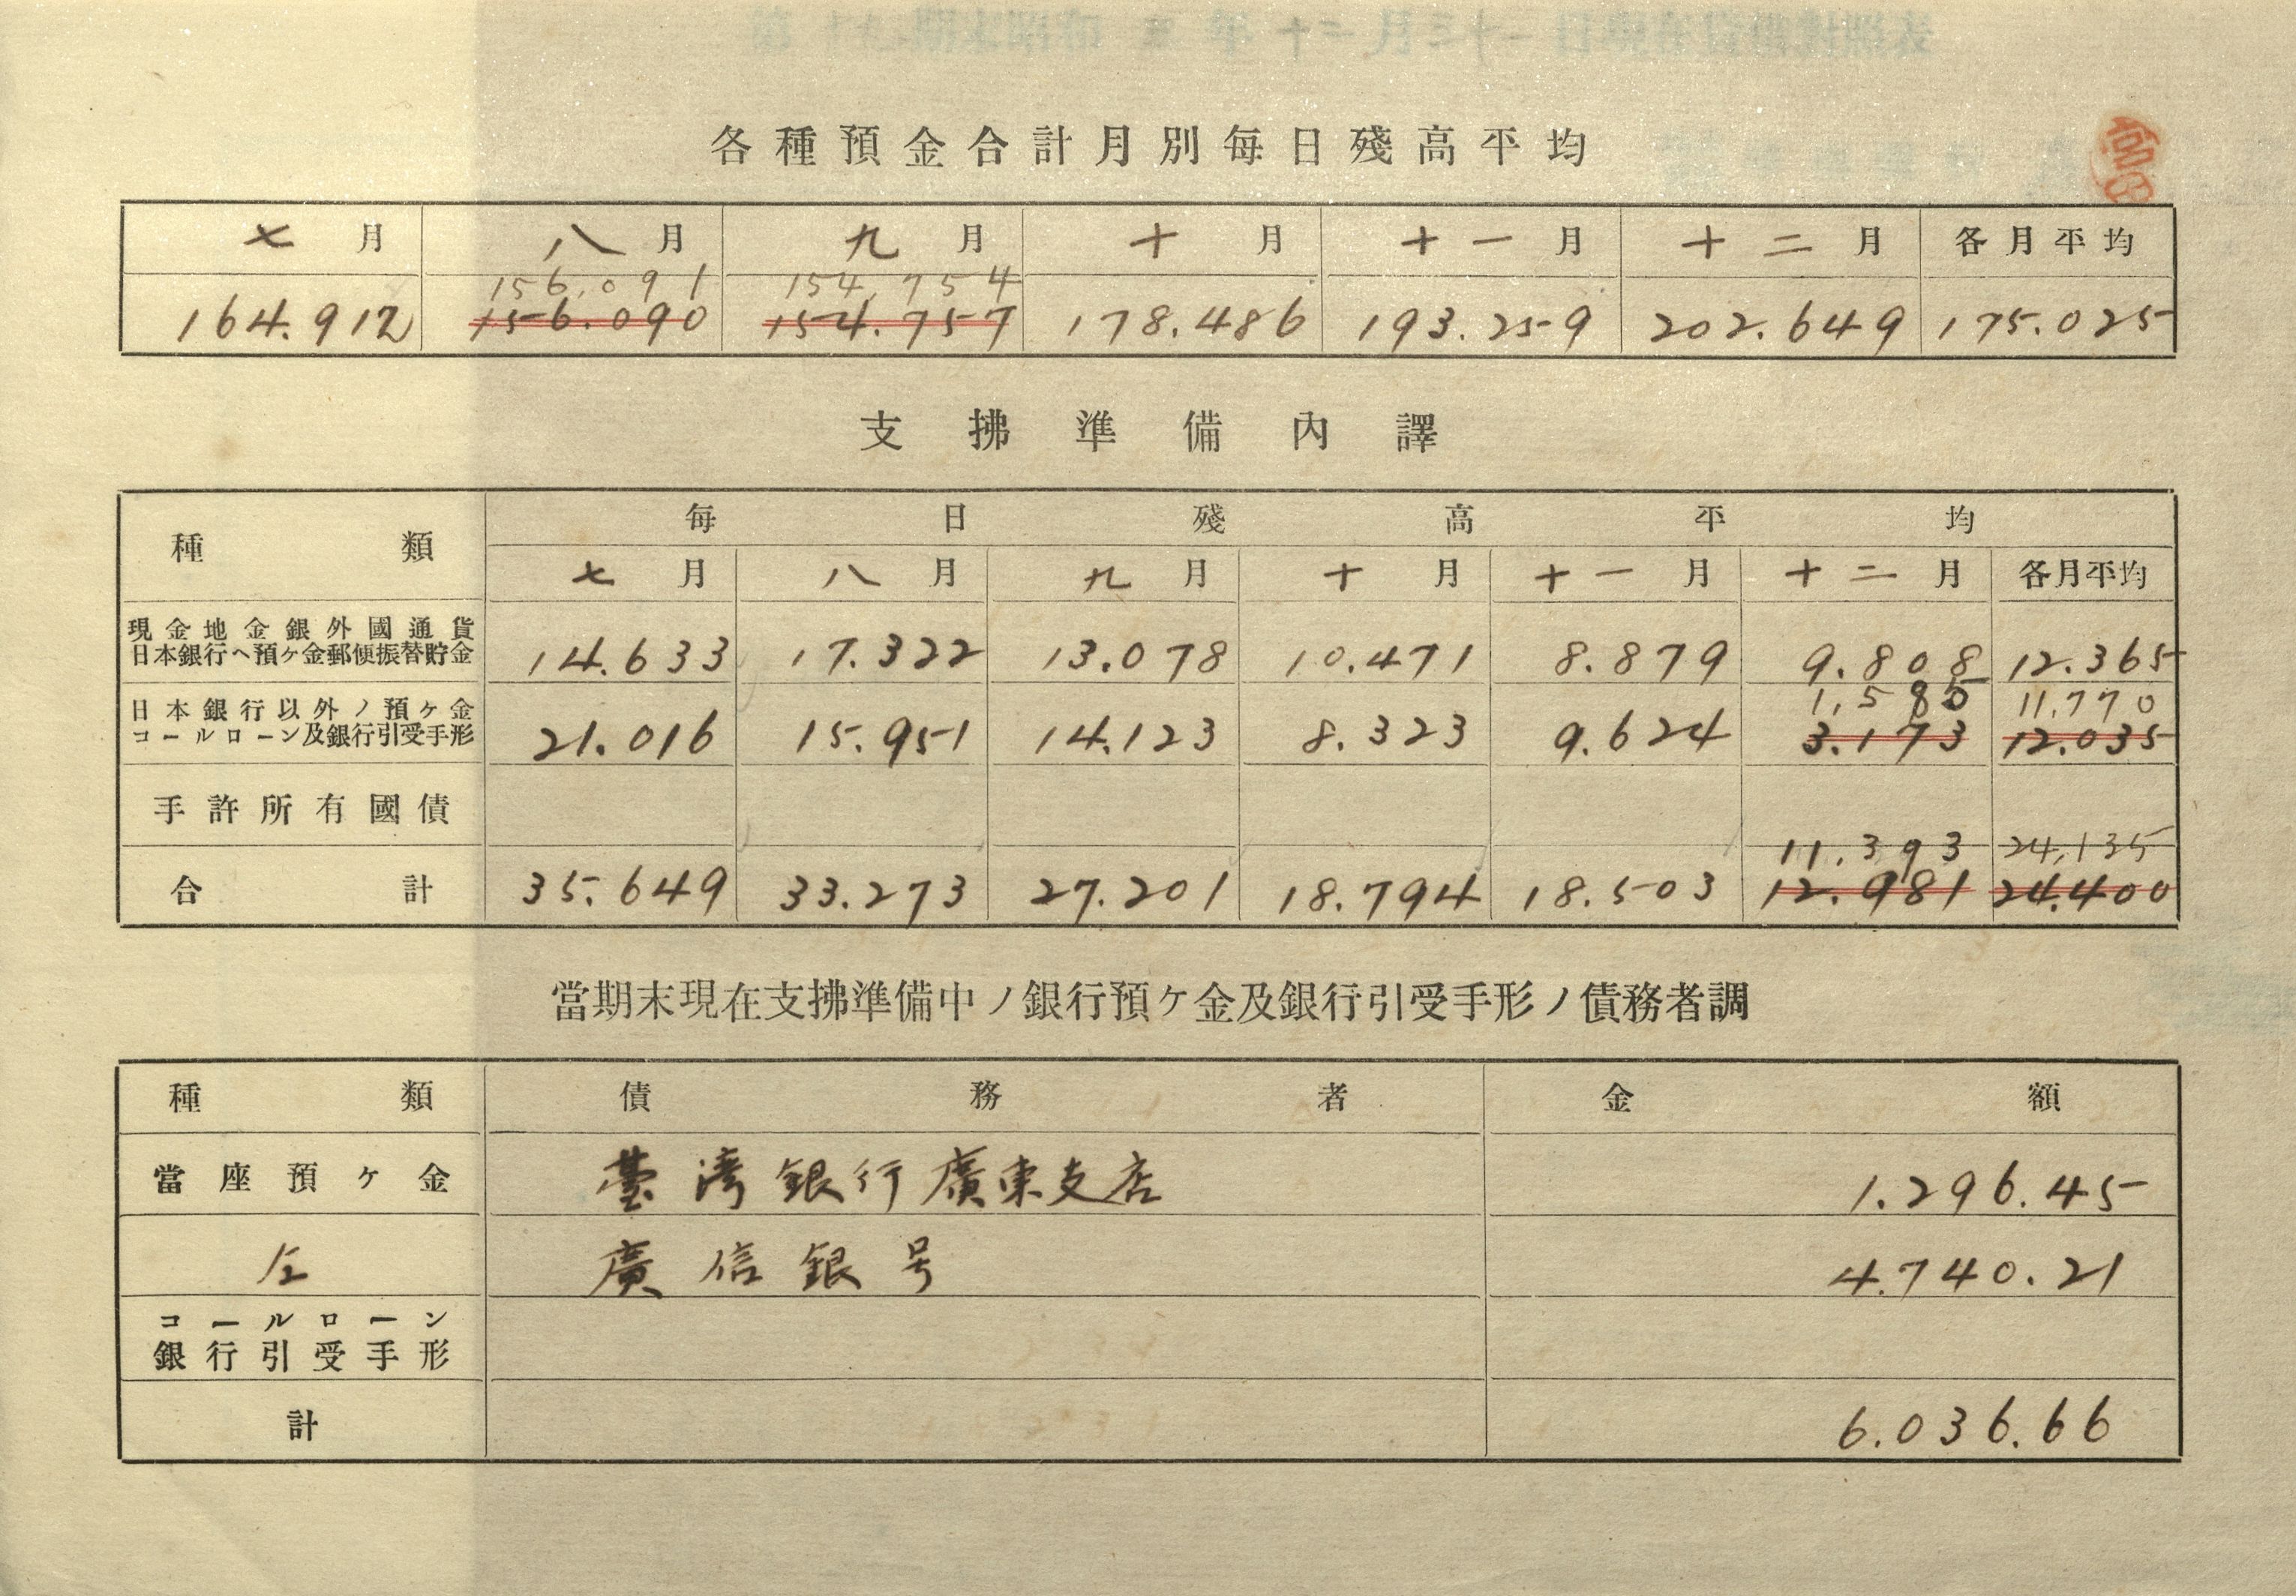 各種預金合計月別每日殘高平均
七月 八月 九月 十月 十一月 十二月 各月平均
156,091 154,754
164.912 156.090 154.757 178.486 193.259 202.649 175.025
支拂準備內譯
種類 每日殘高平均
七月 八月 九月 十月 十一月 十二月 各月平均
現金地金銀外國通貨
日本銀行ヘ預ヶ金郵便振替貯金 14.633 17.322 13.078 10.471 8.879 9.808 12.365
日本銀行以外ノ預ヶ金 1,585 11,770
コールローン及銀行引受手形 21.016 15.951 14.123 8.323 9.624 3.173 12.035
手許所有國債
11,393 24,135
合計 35.649 33.273 27.201 18.794 18.503 12.981 24.400
當期末現在支拂準備中ノ銀行預ヶ金及銀行引受手形ノ債務者調
種類 債務者 金額
當座預ヶ金 臺灣銀行廣東支店 1.296.45
仝 廣信銀号 4.740.21
コールローン
銀行引受手形
計 6.036.66